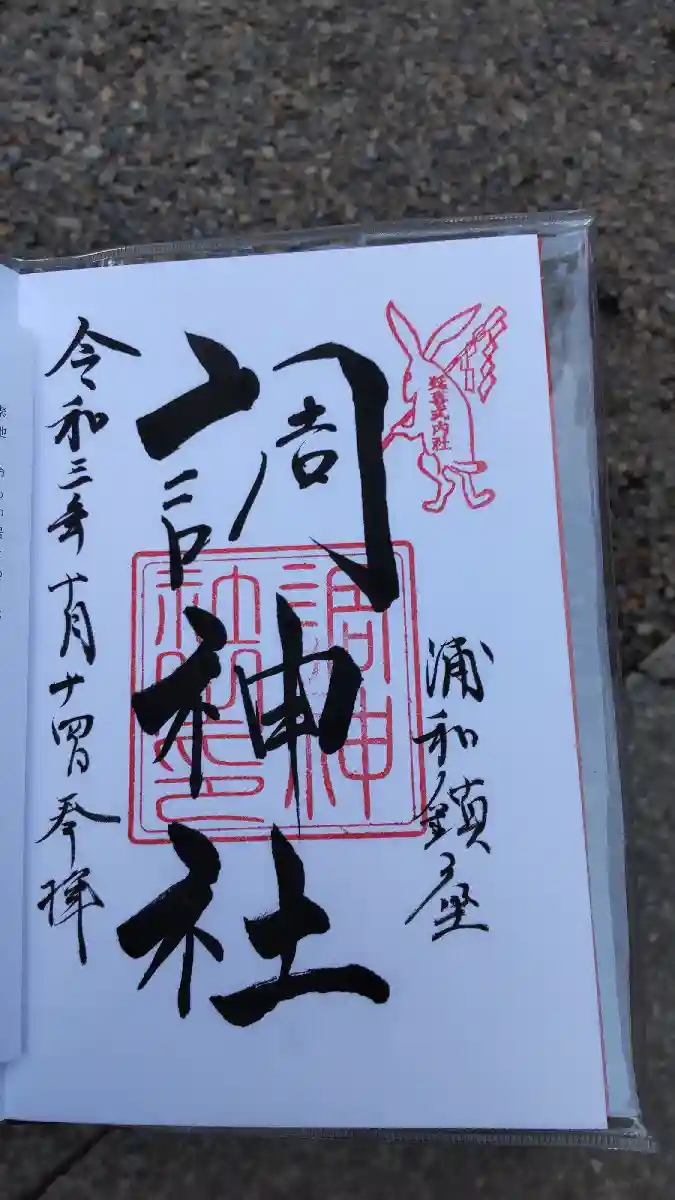 延喜式内社
浦和鎮座
調神社
調神
社印
令和三年十月十四日奉拝